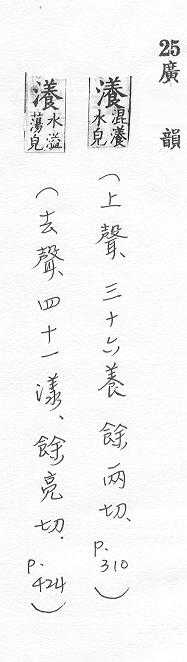 25 廣韻
瀁 滉瀁水皃 (上聲、三十六養 餘兩切、p.310)
瀁 水溢蕩皃 (去聲、四十一漾、餘亮切. p.424)